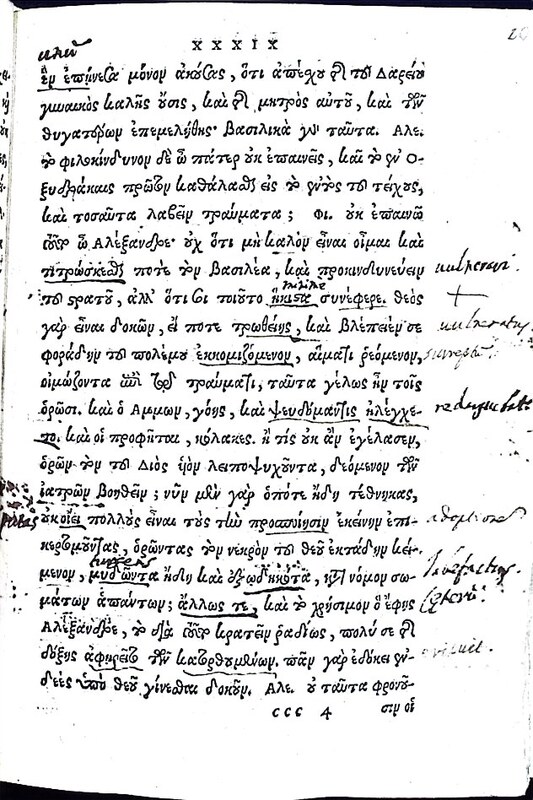 XXXIX
ἓν ἐπῄνεσα μόνον ἀκούσας, ὅτι ἀπέσχου τῆς τοῦ Δαρείου
γυναικὸς καλῆς οὔσης, καὶ τῆς μητρὸς αὐτοῦ, καὶ τῶν
θυγατέρων ἐπεμελήθης· Βασιλικὰ γὰρ ταῦτα. Αλε.
τὸ φιλοκίνδυνον δὲ ὦ πάτερ οὐκ ἐπαινεῖς, καὶ τὸ ἐν Ο-
ξυδράκαις πρῶτον καθάλασθαι εἰς τὸ ἐντὸς τοῦ τείχους,
καὶ τοσαῦτα λαβεῖν τραύματα; Φι. οὐκ ἐπαινῶ
τοῦτο ὦ Αλέξανδρε· οὐχ ὅτι μὴ καλὸν εἶναι οἶμαι καὶ
τιτρώσκεσθαι ποτὲ τὸν Βασιλέα, καὶ προκινδυνεύειν
τοῦ στρατοῦ, ἀλλ' ὅτι σοι τοιοῦτο ἥκιστα συνέφερε. θεὸς
γὰρ εἶναι δοκῶν, εἴ ποτε τρωθείης, καὶ βλέποιέν σε
φοράδην τοῦ πολέμου ἐκκομιζόμενον, αἵματι ῥεόμενον,
οἰμώζοντα ἐπὶ τῷ τραύματι, ταῦτα γέλως ἦν τοῖς
ὁρῶσι. καὶ ὁ Αμμων, γόης, καὶ ψευδόμαντις ἠλέγχε-
το. καὶ οἱ προφῆται, κόλακες. ἢ τίς οὐκ ἂν ἐγέλασεν,
ὁρῶν τὸν τοῦ Διὸς υἱὸν λειποψυχοῦντα, δεόμενον τῶν
ἰατρῶν βοηθεῖν; νῦν μὲν γὰρ ὁπότε ἤδη τέθνηκας,
οὐκ οἴει πολλοὺς εἶναι τοὺς τὴν προσποίησιν ἐκείνην ἐπι-
κερτομοῦντας, ὁρῶντας τὸν νεκρὸν τοῦ θεοῦ ἐκτάδην κεί-
μενον, μυδῶντα ἤδη καὶ ἐξῳδηκότα, κατὰ νόμον σω-
μάτων ἁπάντων; ἄλλως τε, καὶ τὸ χρήσιμον ὃ ἔφης
Αλέξανδρε, τὸ διὰ τοῦτο κρατεῖν ῥᾳδίως, πολύ σε τῆς
δόξης ἀφῃρεῖτο τῶν κατορθουμένων. πᾶν γὰρ ἐδόκει ἐν-
δεὲς ὑπὸ θεοῦ γίνεσθαι δοκοῦν. Αλε. οὐ ταῦτα φρονοῦ-
ccc 4 σιν οἱ